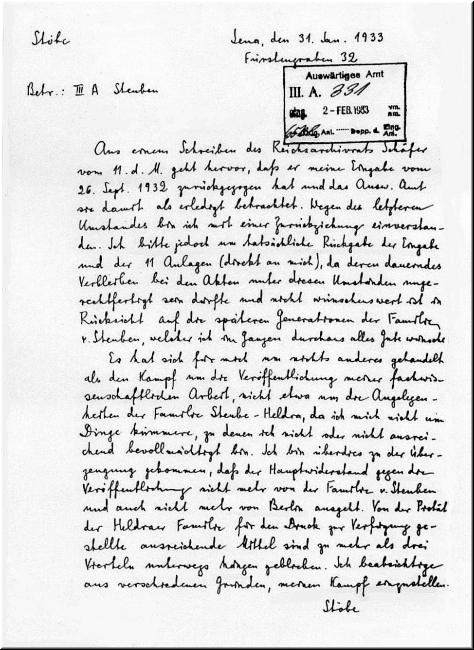 Stöbe
Jena, den 31. Jan. 1933
Fürstengraben 32
Betr.: III A Steuben
Auswärtiges Amt
III. A. 331
eing. 2-FEB.1933 vm. nm.
Anl. Dopp. d. Eing.
Aus einem Schreiben des Reichsarchivrats Schäfer
vom 11. d. M. geht hervor, daß er meine Eingabe vom
26. Sept. 1932 zurückgezogen hat und das Ausw. Amt
sie damit als erledigt betrachtet. Wegen des letzteren
Umstandes bin ich mit einer Zurückziehung einverstan-
den. Ich bitte jedoch um tatsächliche Rückgabe der Eingabe
und der 11 Anlagen (direkt an mich), da deren dauerndes
Verbleiben bei den Akten unter diesen Umständen unge-
rechtfertigt sein dürfte und nicht wünschenswert ist in
Rücksicht auf die späteren Generationen der Familie
v. Steuben, welcher ich im Ganzen durchaus alles Gute wünsche.
Es hat sich für mich um nichts anderes gehandelt
als den Kampf um die Veröffentlichung meiner fachwis-
senschaftlichen Arbeit, nicht etwa um die Angelegen-
heiten der Familie Steube-Heldra, da ich mich nicht um
Dinge kümmere, zu denen ich nicht oder nicht ausrei-
chend bevollmächtigt bin. Ich bin überdies zu der Über-
zeugung gekommen, daß der Hauptwiderstand gegen die
Veröffentlichung nicht mehr von der Familie v. Steuben
und auch nicht mehr von Berlin ausgeht. Von der
der Heldraer Familie für den Druck zur Verfügung ge-
stellte ausreichende Mittel sind zu mehr als drei
Vierteln unterwegs hängen geblieben. Ich beabsichtige
aus verschiedenen Gründen, meinen Kampf einzustellen.
Stöbe